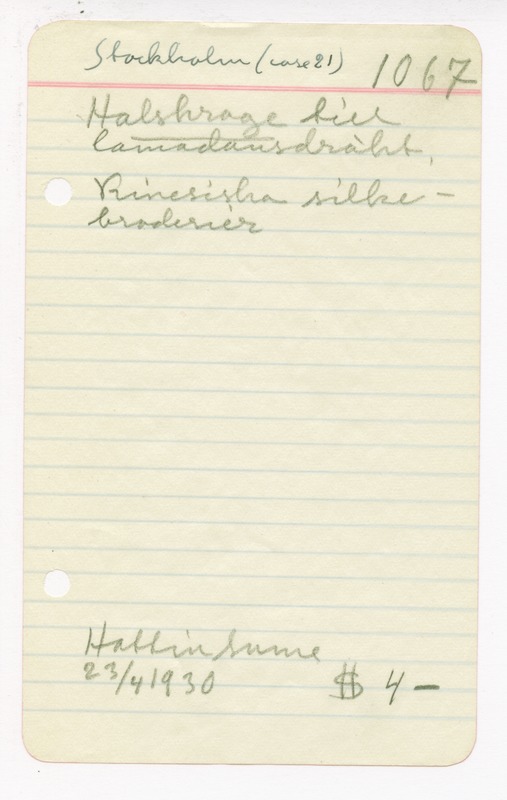 Stockholm (case 21) 1067
Halskrage till
lamadansdräkt,
Kinesiska silke-
broderier
Hattin Sume
23/4 1930 $ 4 -